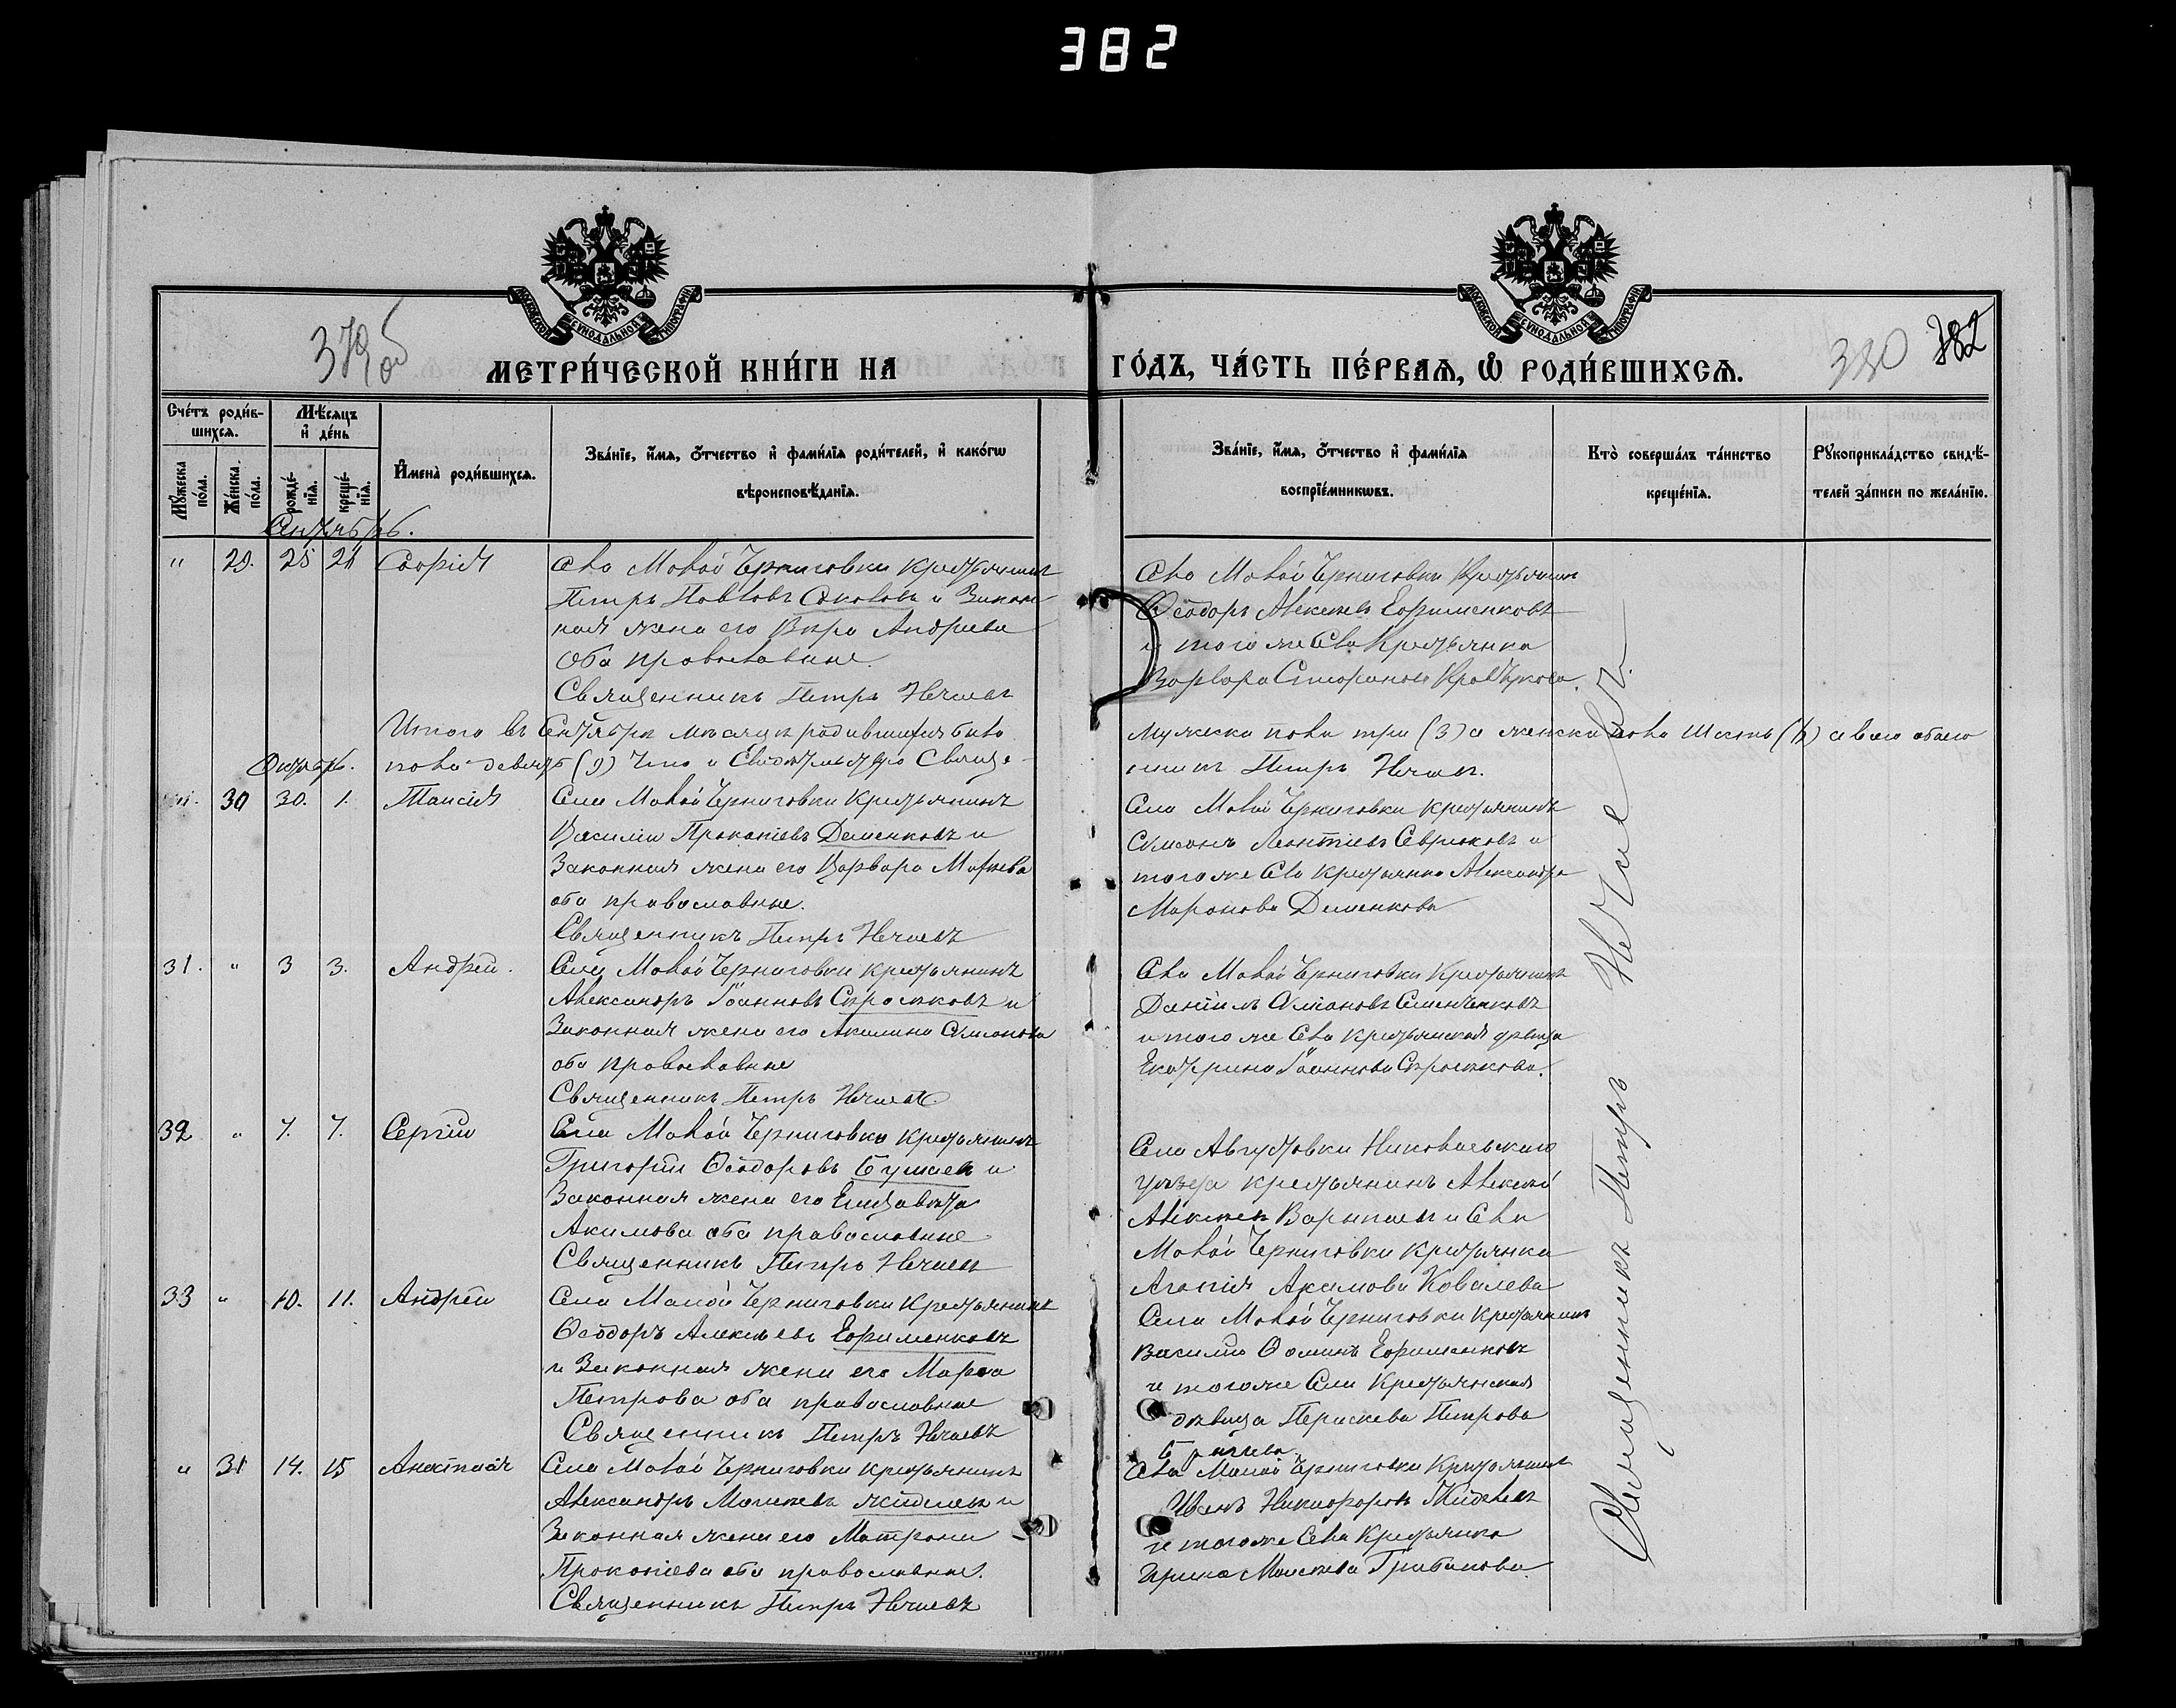 382
МОСКОВСКОЙ СѴНОДАЛЬНОЙ ТИПОГРАФІИ
МОСКОВСКОЙ СѴНОДАЛЬНОЙ ТИПОГРАФІИ
379об
380 382
МЕТРИ́ЧЕСКОЙ КНИ́ГИ НА ГО́ДЪ, ЧА́СТЬ ПЕ́РВАѦ, Ѡ҆ РОДИ́ВШИХСѦ.
Сче́тъ роди́в-
шихсѧ.
Мꙋ́жеска по́ла.
Же́нска по́ла.
Мѣ́сѧцъ
и҆ де́нь
рожде́-
нїѧ.
креще́-
нїѧ.
И҆мена̀ роди́вшихсѧ.
Зва́нїе, и҆́мѧ, ѻ҆́тчество и҆ фами́лїѧ роди́телей, и҆ како́гѡ
вѣроисповѣ́данїѧ.
Зва́нїе, и҆́мѧ, ѻ҆́тчество и҆ фами́лїѧ
воспрїе́мникѡвъ.
Кто̀ соверша́лъ та́инство
креще́нїѧ.
Рꙋкоприкла́дство свидѣ́-
телей за́писи по жела́нїю.
Сентябрь.
" 29. 25 26 Софія Села Малой Черниговки крестьянинъ
Петръ Павловъ Соколовъ и Закон
ная жена его Вѣра Андреева
Оба православные.
Священникъ Петръ Нечаевъ
Села Малой Черниговки Крестьянинъ
Ѳеодоръ Алексѣевъ Ефименковъ
и того же Села Крестьянка
Варвара
Итого въ Сентябрѣ мѣсяцѣ родившихся было мужеска пола три (3) а женска пола шесть (6) а всего обоего
Октябрь. пола девять (9) Что и Свидѣтельствую Священ-
никъ Петръ Нечаевъ.
30 30. 1. Таисія Села Малой Черниговки Крестьянинъ
Василій Прокопіевъ Деменковъ и
Законная жена его Варвара
оба православные.
Священникъ Петръ Нечаевъ
Села Малой Черниговки крестьянинъ
Симеонъ Леонтіевъ и
того же Села крестьянка Александра
Миронова Деменкова
31. " 3 3. Андрей. Села Малой Черниговки крестьянинъ
Александръ Іоанновъ и
Законная жена его Акилина Симонова
оба православные
Священникъ Петръ Нечаевъ
Села Малой Черниговки Крестьянинъ
Даніилъ
и того же Села Крестьянская дѣвица
Екатерина Іоаннова
32 " 7. 7. Сергій Села Малой Черниговки крестьянинъ
Григорій Ѳеодоровъ и
Законная жена его Елизавета
Акимова оба православные
Священникъ Петръ Нечаевъ
Села Августовки Николаевскаго
уѣзда крестьянинъ Алексѣй
Алексѣевъ и Села
Малой Черниговки крестьянка
Агапія Акимова Ковалева
33 " 10. 11. Андрей Села Малой Черниговки Крестьянинъ
Ѳеодоръ Алексѣевъ Ефименковъ
и Законная жена его Марѳа
Петрова оба православные
Священникъ Петръ Нечаевъ
Села Малой Черниговки Крестьянинъ
Василій Ѳоминъ Ефименковъ
и того же Села Крестьянская
дѣвица Параскева Петрова
" 31 14. 15 Анастасія Села Малой Черниговки крестьянинъ
Александръ Моисеевъ Жиделевъ и
Законная жена его Матрона
Прокопіева оба православные.
Священникъ Петръ Нечаевъ
Села Малой Черниговки Крестьянинъ
Иванъ Никифоровъ Жиделевъ
и того же Села Крестьянка
Ирина Моисеева Грибанова
Священникъ Петръ Нечаевъ.